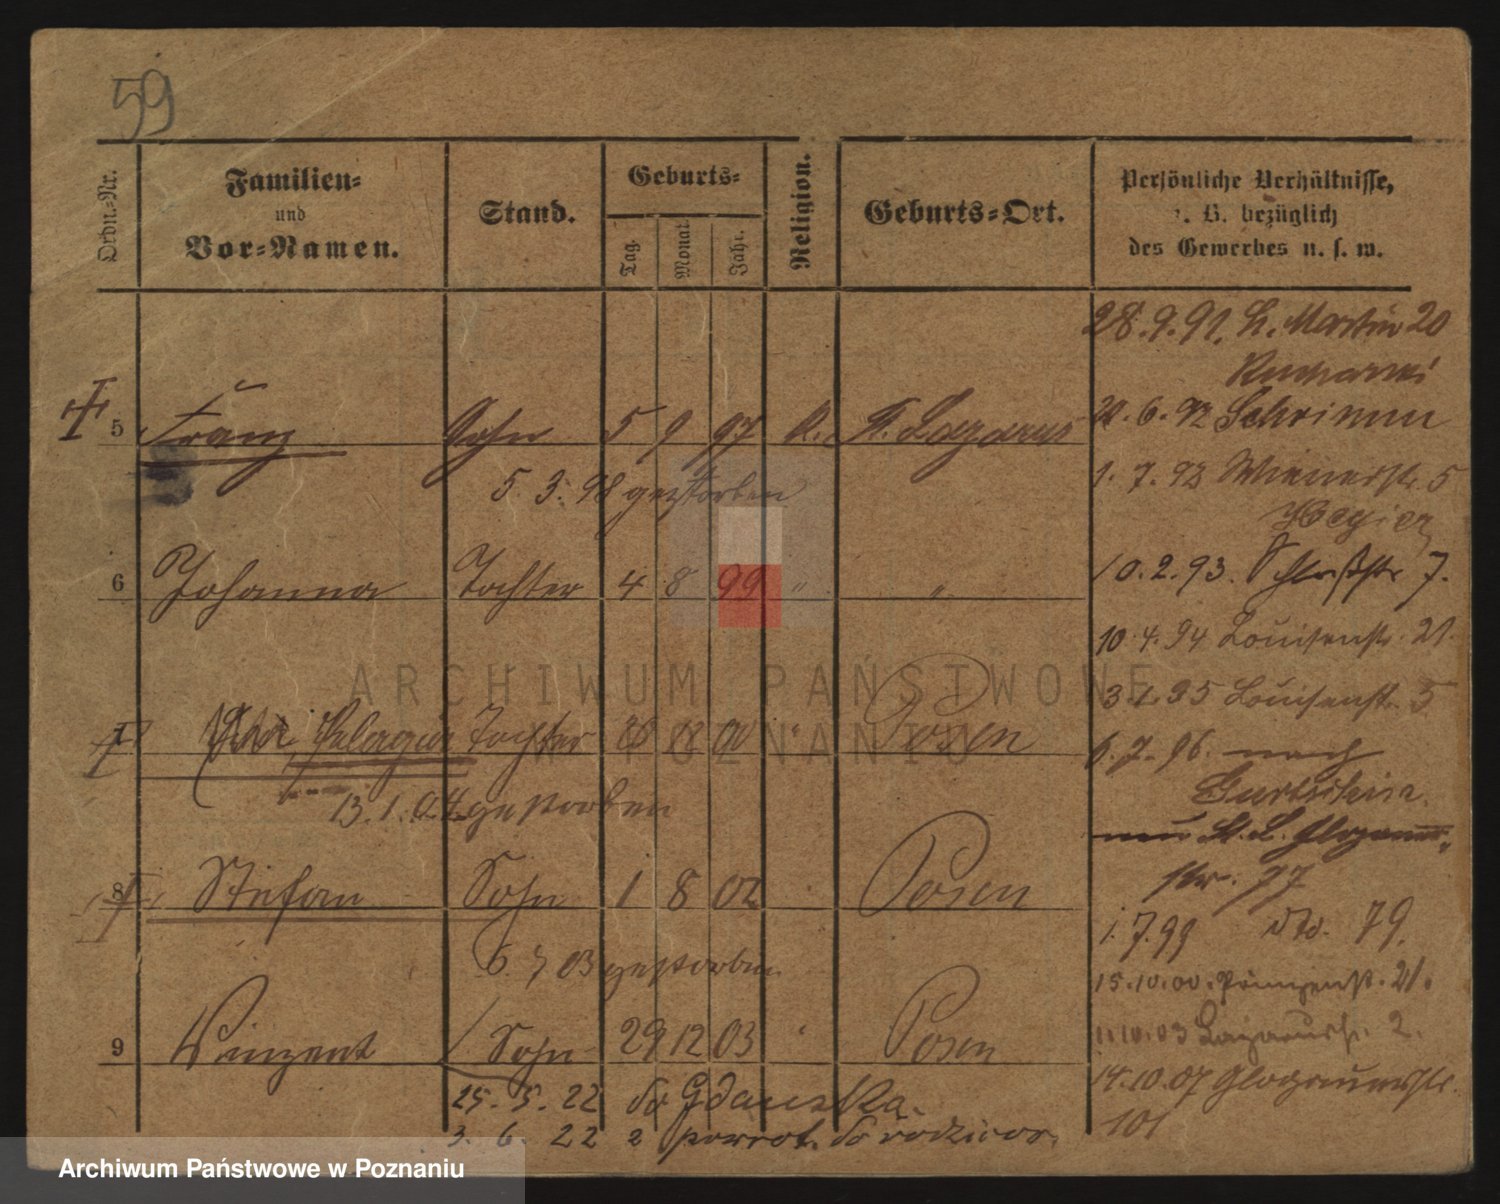 59
Ordn.-Nr.
Familien-
und
Vor-Namen.
Stand.
Geburts-
Tag.
Monat.
Jahr.
Religion.
Geburts-Ort.
Persönliche Verhältnisse,
z. B. bezüglich
des Gewerbes u. s. w.
28.9.91. St. Martin 20
Kucharski
6.92 Schrimm
5 Franz Sohn 5 9 97 K. St. Lazarus
1.7.92 Wienerstr. 5
5. 3. 98 gestorben
10.2.93. Schloßstr 7.
6 Johanna Tochter 4 8 99 " "
10.4.94 Louisenstr. 21.
Louisenstr. 5
Pelagia Tochter Posen
6.7.96. nach
Gurtschin.
13.1.04 gestorben
nun St. L. Glogauer-
str. 77
8 Stefan Sohn 1 8 02 Posen
1.7.99 dto. 79.
6. 7 03 gestorben
15.10.00. Prinzenstr. 21.
9 Vinzent Sohn 29 12 03 Posen
11.10.03 Lazarusstr. 2.
14.10.07 Glogauerstr.
101
25. 5. 22 do Gdańska.
3. 6. 22 z powrot. do rodziców.
ARCHIWUM PAŃSTWOWE
W POZNANIU
Archiwum Państwowe w Poznaniu